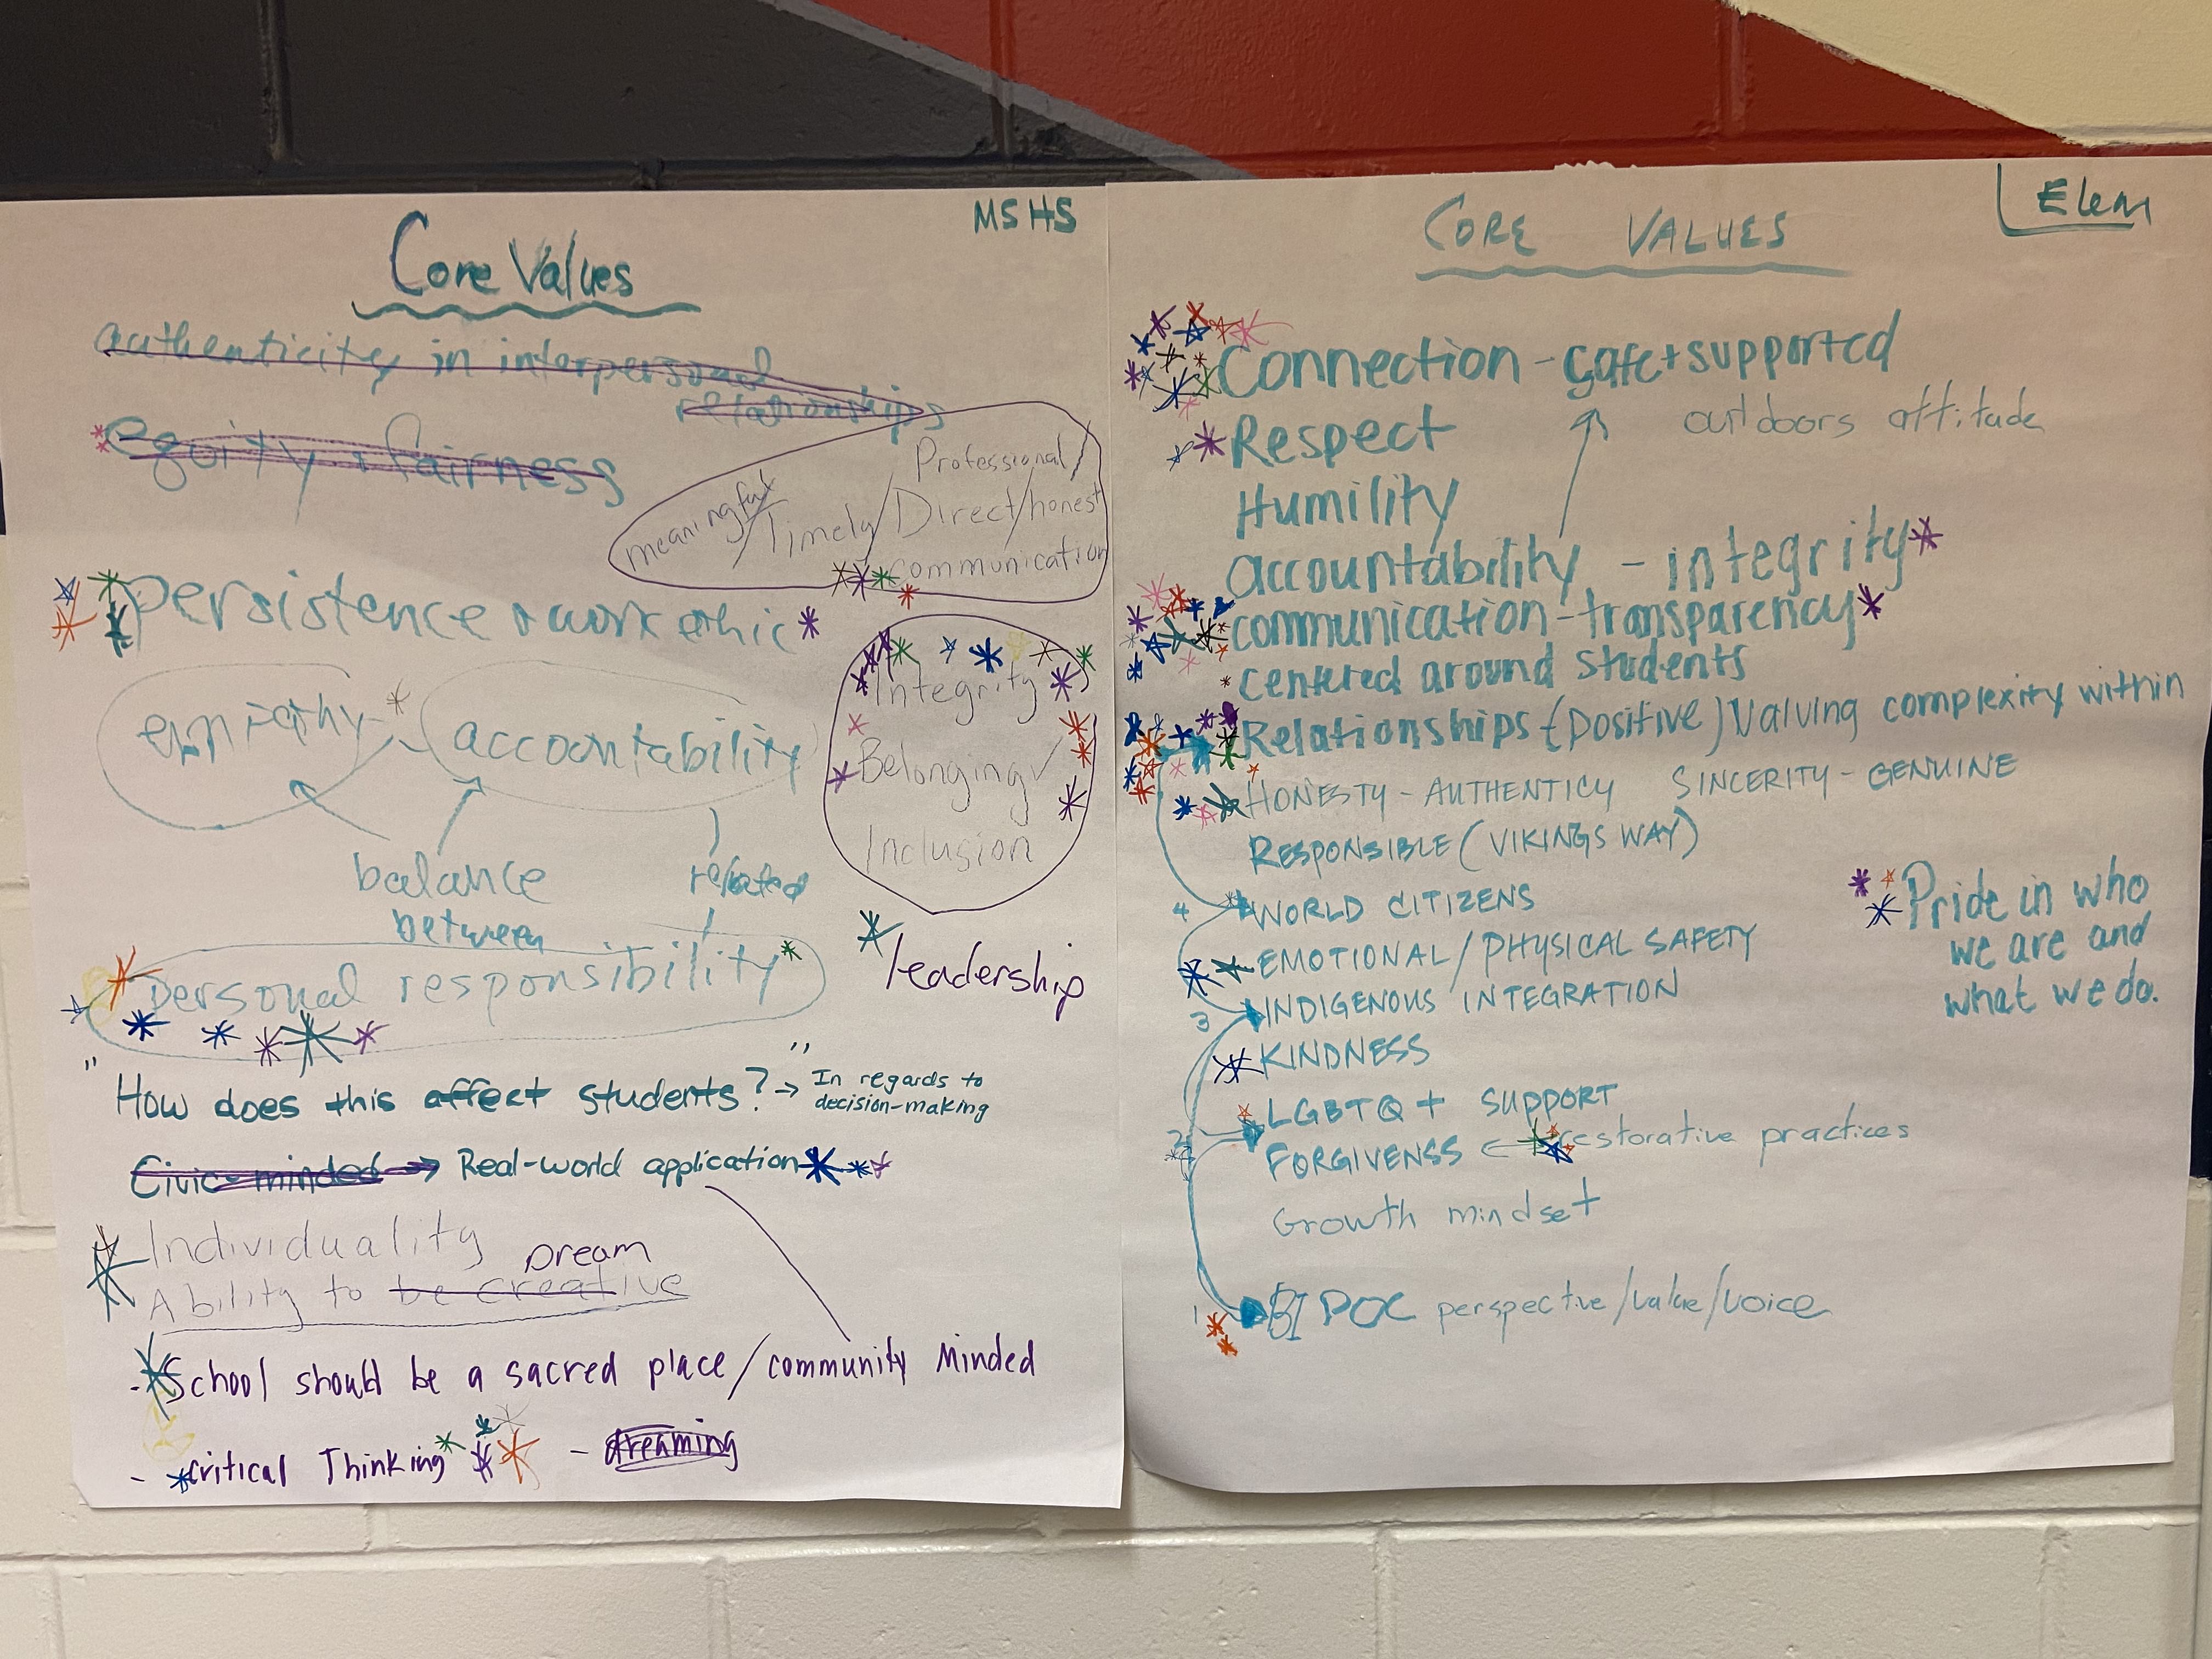 MSHS
Core Values
authenticity in interpersonal
relationships
equity + fairness
meaningful/Timely/Professional/
Direct/honest
communication
Persistence + work ethic
empathy
accountability
Integrity
Belonging
Inclusion
balance
between
related
Personal responsibility
leadership
"How does this affect students?" → In regards to
decision-making
Civic-minded → Real-world application
Individuality
Dream
Ability to be creative
- School should be a sacred place/community Minded
- critical Thinking - dreaming
Elem
CORE VALUES
Connection - safe + supported
outdoors attitude
Respect
Humility
accountability - integrity
communication - transparency
centered around students
Relationships (positive) Valuing complexity within
HONESTY - AUTHENTICY SINCERITY - GENUINE
RESPONSIBLE (VIKINGS WAY)
4 WORLD CITIZENS
EMOTIONAL/PHYSICAL SAFETY
3 INDIGENOUS INTEGRATION
KINDNESS
LGBTQ + SUPPORT
2
FORGIVENSS ← restorative practices
Growth mindset
1 BIPOC perspective/value/voice
Pride in who
we are and
what we do.